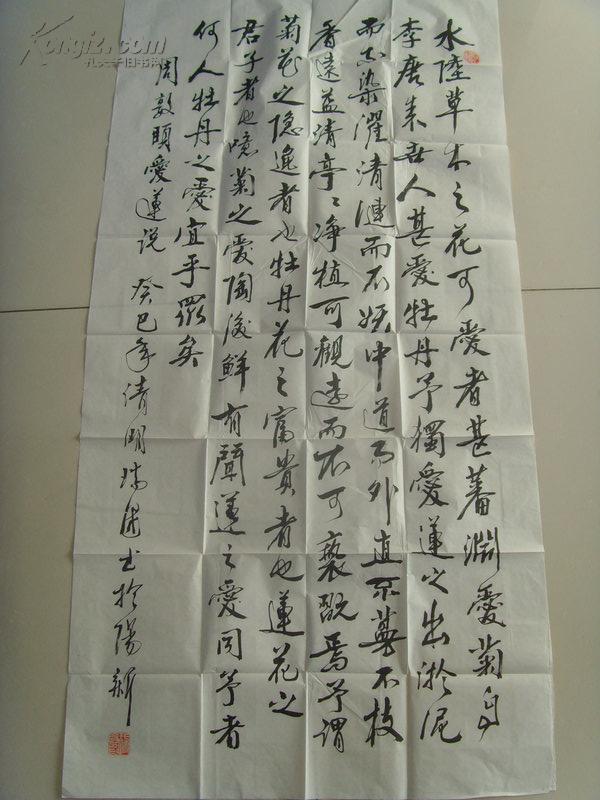 水陸草木之花可愛者甚蕃淵愛菊自
李唐来世人甚愛牡丹予獨愛蓮之出淤泥
而不染濯清漣而不妖中通而外直不蔓不枝
香遠益清亭〻净植可觀遠而不可褻翫焉予謂
菊花之隐逸者也牡丹花之富貴者也蓮花之
君子者也噫菊之愛陶後鮮有聞蓮之愛同予者
何人牡丹之愛宜乎眾矣
周敦頤愛蓮说 癸巳年清明
书於陽新
Kongfz.com
孔夫子旧书网